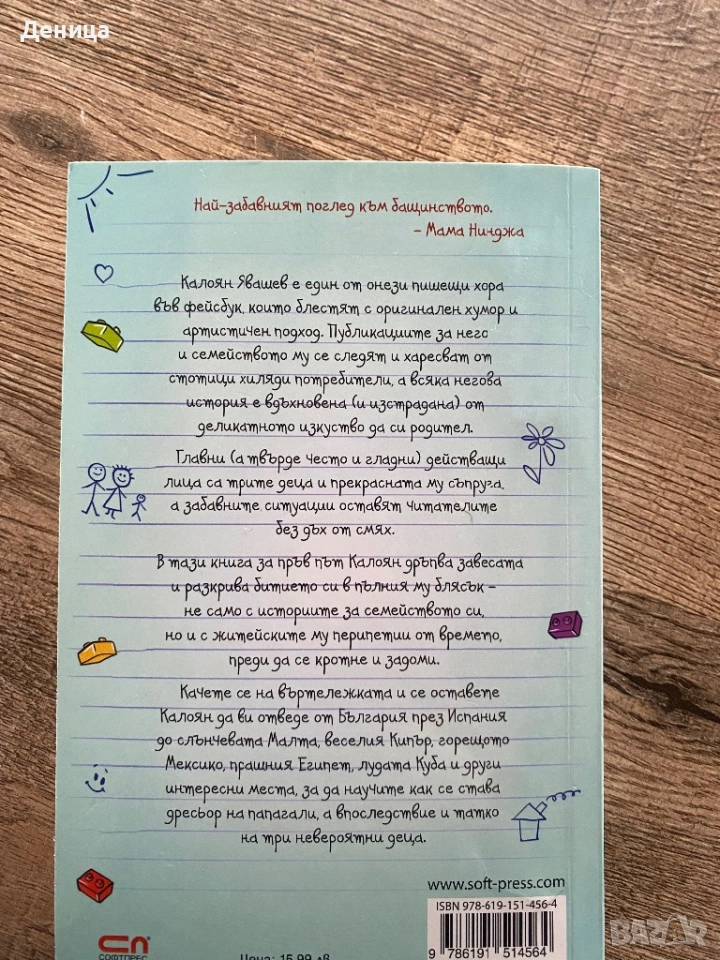 Деница
Най-забавният поглед към бащинството.
- Мама Нинджа
Калоян Явашев е един от онези пишещи хора
във фейсбук, които блестят с оригинален хумор и
артистичен подход. Публикациите за него
и семейството му се следят и харесват от
стотици хиляди потребители, а всяка негова
история е вдъхновена (и изстрадана) от
деликатното изкуство да си родител.
Главни (а твърде често и гладни) действащи
лица са трите деца и прекрасната му съпруга,
а забавните ситуации оставят читателите
без дъх от смях.
В тази книга за пръв път Калоян дръпва завесата
и разкрива битието си в пълния му блясък –
не само с историите за семейството си,
но и с житейските му перипетии от времето,
преди да се кротне и задоми.
Качете се на въртележката и се оставете
Калоян да ви отведе от България през Испания
до слънчевата Малта, веселия Кипър, горещото
Мексико, прашния Египет, лудата Куба и други
интересни места, за да научите как се става
дресьор на папагали, а впоследствие и татко
на три невероятни деца.
www.soft-press.com
ISBN 978-619-151-456-4
9 786191 514564
СОФТПРЕС
Цена: 15,99 лв.
BAZAR